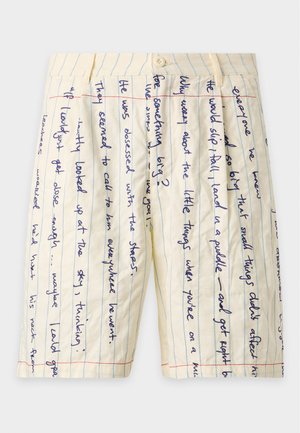 everyone he knew
so big that small things didn't affect
he would slip, fall, land in a puddle — and get right
Why worry about the little things when you're on a
for something big?
He was obsessed with the stars.
They seemed to call to him everywhere he went.
looked up at the sky, thinking:
if I could just get close enough... maybe I could
worried he'd hurt his neck from